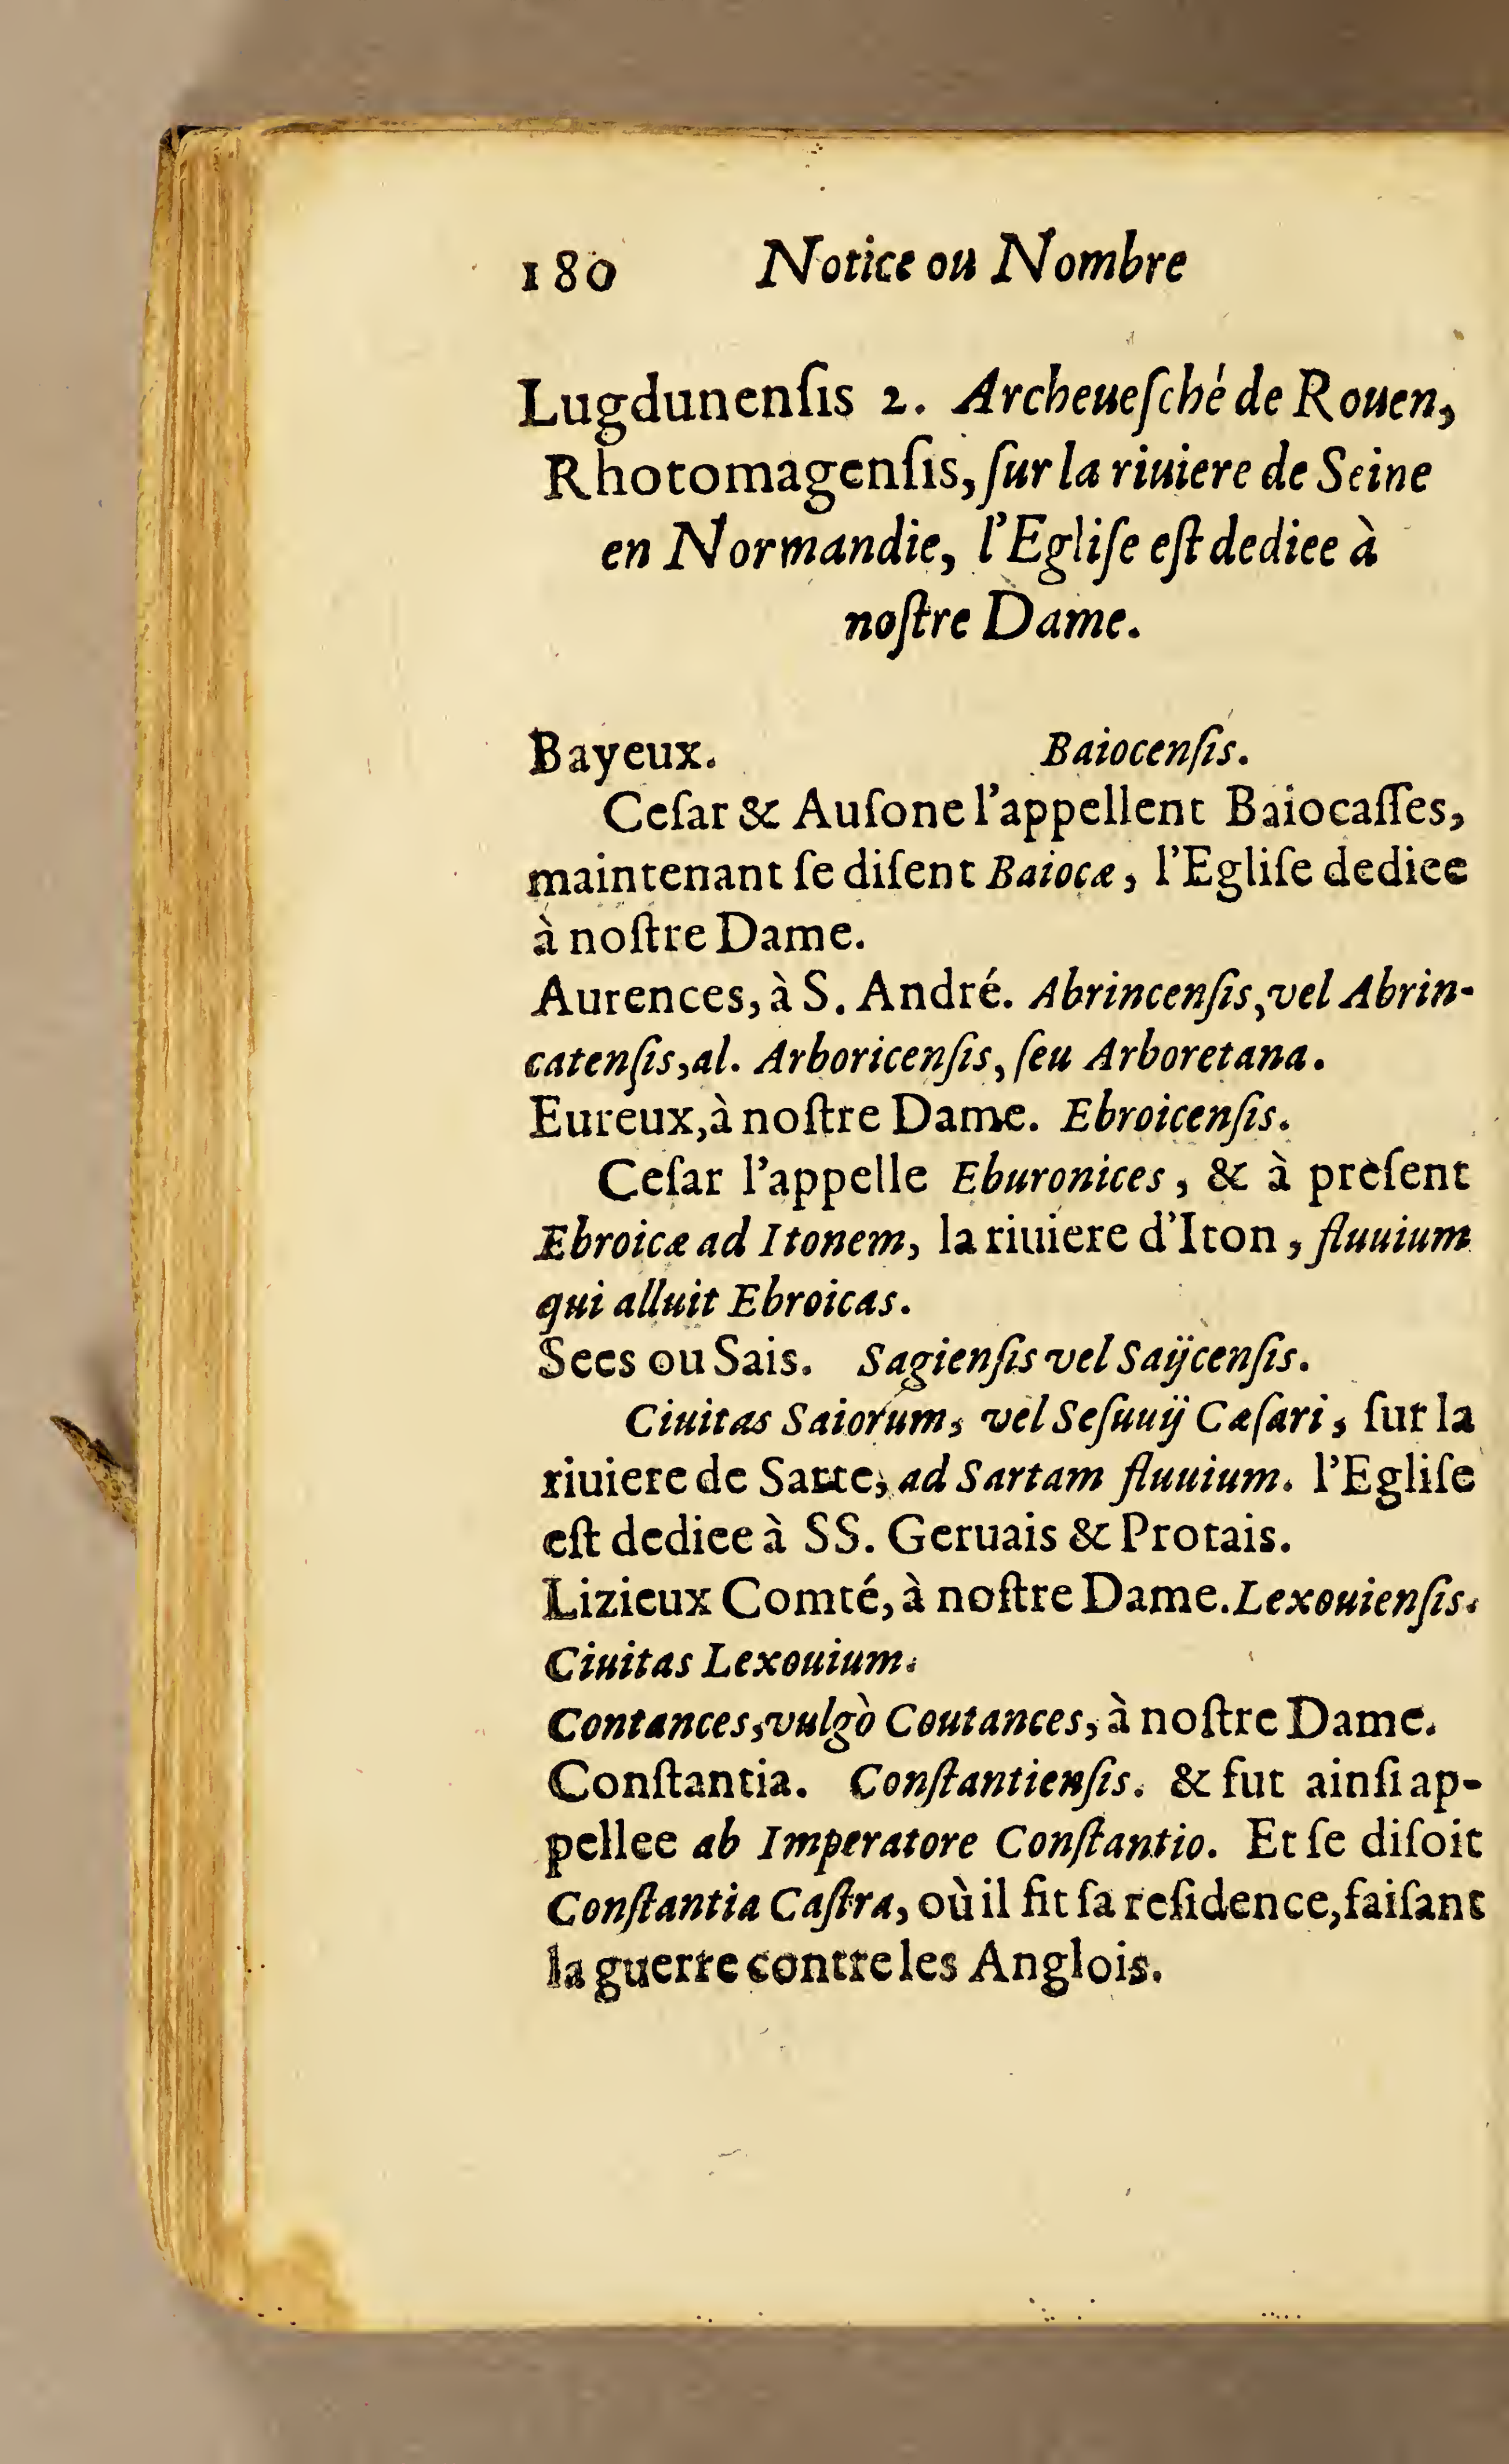 180 Notice ou Nombre
Lugdunenſis 2. Archeueſché de Rouen,
Rhotomagenſis, ſur la riuiere de Seine
en Normandie, l'Egliſe eſt dediee à
noſtre Dame.
Bayeux. Baiocenſis.
Ceſar & Auſone l'appellent Baiocaſſes,
maintenant ſe diſent Baiocæ, l'Egliſe dediee
à noſtre Dame.
Aurences, à S. André. Abrincenſis, vel Abrin-
catenſis, al. Arboricenſis, ſeu Arboretana.
Eureux, à noſtre Dame. Ebroicenſis.
Ceſar l'appelle Eburonices, & à preſent
Ebroicæ ad Itonem, la riuiere d'Iton, fluuium
qui alluit Ebroicas.
Sees ou Sais. Sagienſis vel Saijcenſis.
Ciuitas Saiorum, vel Seſuuij Cæſari, ſur la
riuiere de Sarte, ad Sartam fluuium. l'Egliſe
eſt dediee à SS. Geruais & Protais.
Lizieux Comté, à noſtre Dame. Lexouienſis.
Ciuitas Lexouium.
Contances, vulgò Coutances, à noſtre Dame.
Conſtantia. Conſtantienſis. & fut ainſi ap-
pellee ab Imperatore Conſtantio. Et ſe diſoit
Conſtantia Caſtra, où il fit ſa reſidence, faiſant
la guerre contre les Anglois.